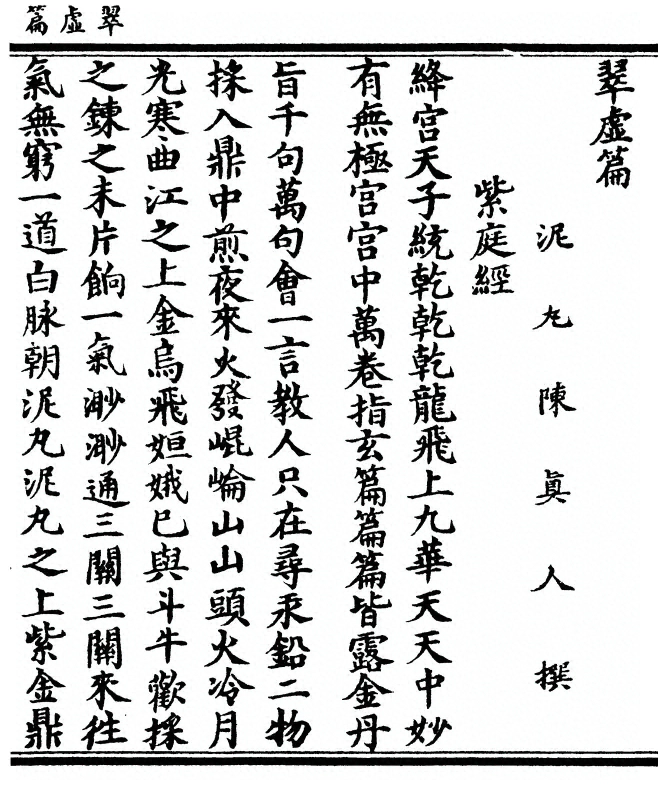 翠虛篇
翠虛篇
泥丸陳眞人撰
紫庭經
絳宮天子統乾乾乾龍飛上九華天天中妙
有無極宮宮中萬卷指玄篇篇篇皆露金丹
旨千句萬句會一言教人只在尋汞鉛二物
採入鼎中煎夜來火發崐崘山山頭火冷月
光寒曲江之上金烏飛姮娥已與斗牛歡採
之鍊之未片餉一氣渺渺通三關三關來往
氣無窮一道白脉朝泥丸泥丸之上紫金鼎